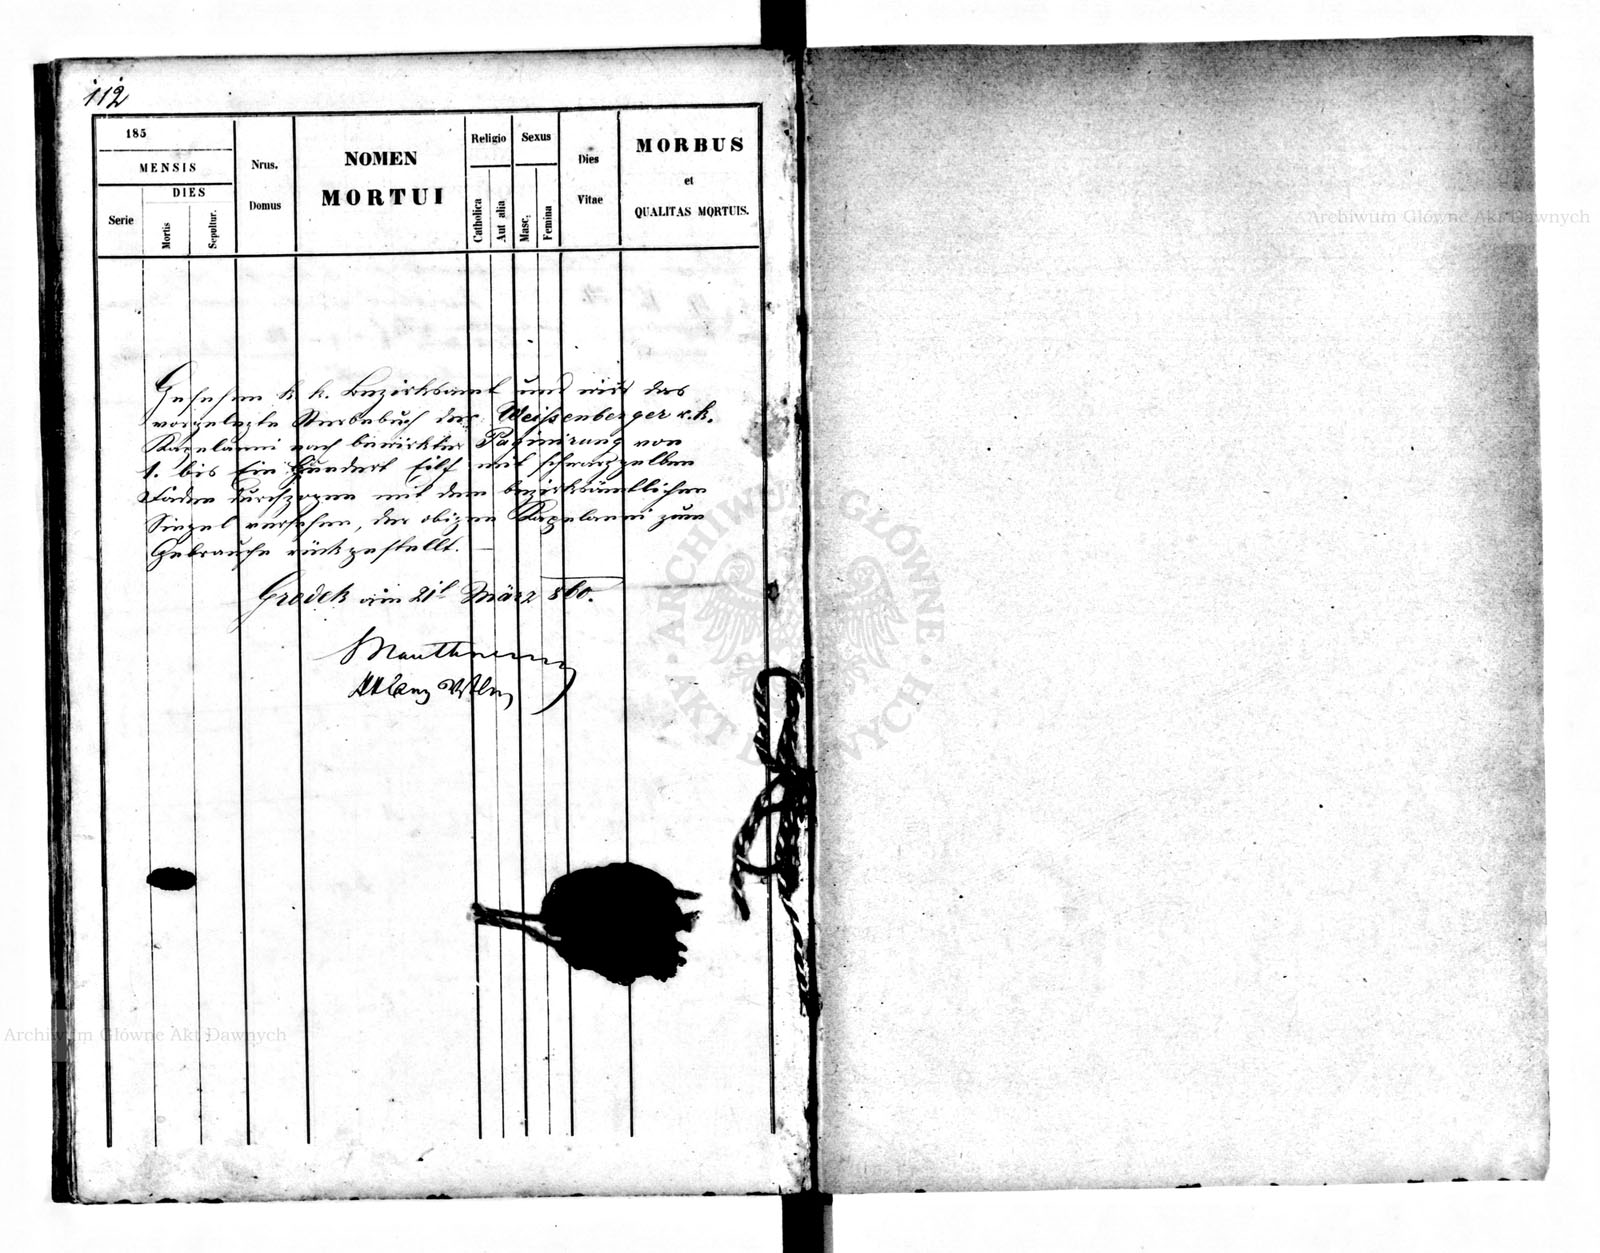 112
185
MENSIS
DIES
Serie
Mortis
Sepultur.
Nrus.
Domus
NOMEN
MORTUI
Religio
Catholica
Aut alia
Sexus
Masc:
Femina
Dies
Vitae
MORBUS
et
QUALITAS MORTUIS.
Gesehen k k. Bezirksamt und wird das
vorgelegte Sterbebuch der Weißenberger r. k.
Kapelanei nach bewirkter Paginirung von
1. bis Ein Hundert Eilf mit schwarzgelben
Faden durchzogen mit dem bezirksämtlichen
Siegel versehen, der obigen Kapelanei zum
Gebrauche rückgestellt.
Grodek am 21t März 860.
Archiwum Główne Akt Dawnych
Archiwum Główne Akt Dawnych
ARCHIWUM GŁÓWNE · AKT DAWNYCH ·